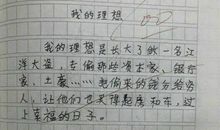 我的理想
我的理想是长大了做一名江
洋大盗,专偷那些资本家、银行
家、土豪……把偷来的钱分给穷
人,让他们也买得起房和车,过
上幸福的日子。